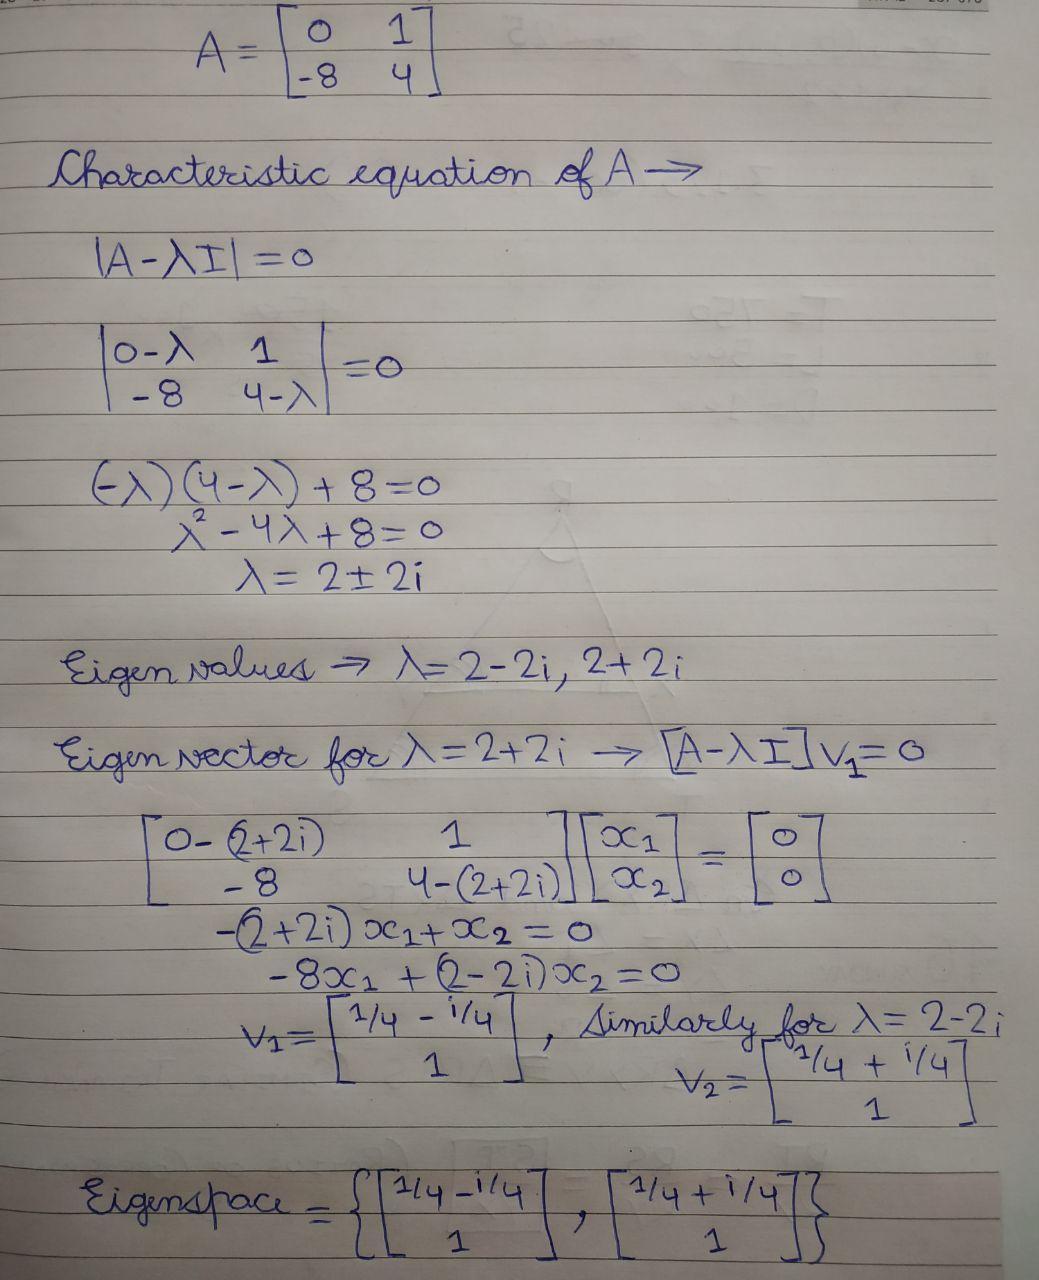 A = [0 1
-8 4]
Characteristic equation of A →
|A-λI| = 0
|0-λ 1
-8 4-λ| = 0
(-λ)(4-λ) + 8 = 0
λ² - 4λ + 8 = 0
λ = 2 ± 2i
Eigen values → λ = 2-2i, 2+2i
Eigen vector for λ = 2+2i → [A-λI]V₁ = 0
[0-(2+2i) 1
-8 4-(2+2i)] [x₁
x₂] = [0
0]
-(2+2i)x₁ + x₂ = 0
-8x₁ + (2-2i)x₂ = 0
V₁ = [1/4 - i/4
1], Similarly for λ = 2-2i
V₂ = [1/4 + i/4
1]
Eigenspace = {[1/4 - i/4
1], [1/4 + i/4
1]}